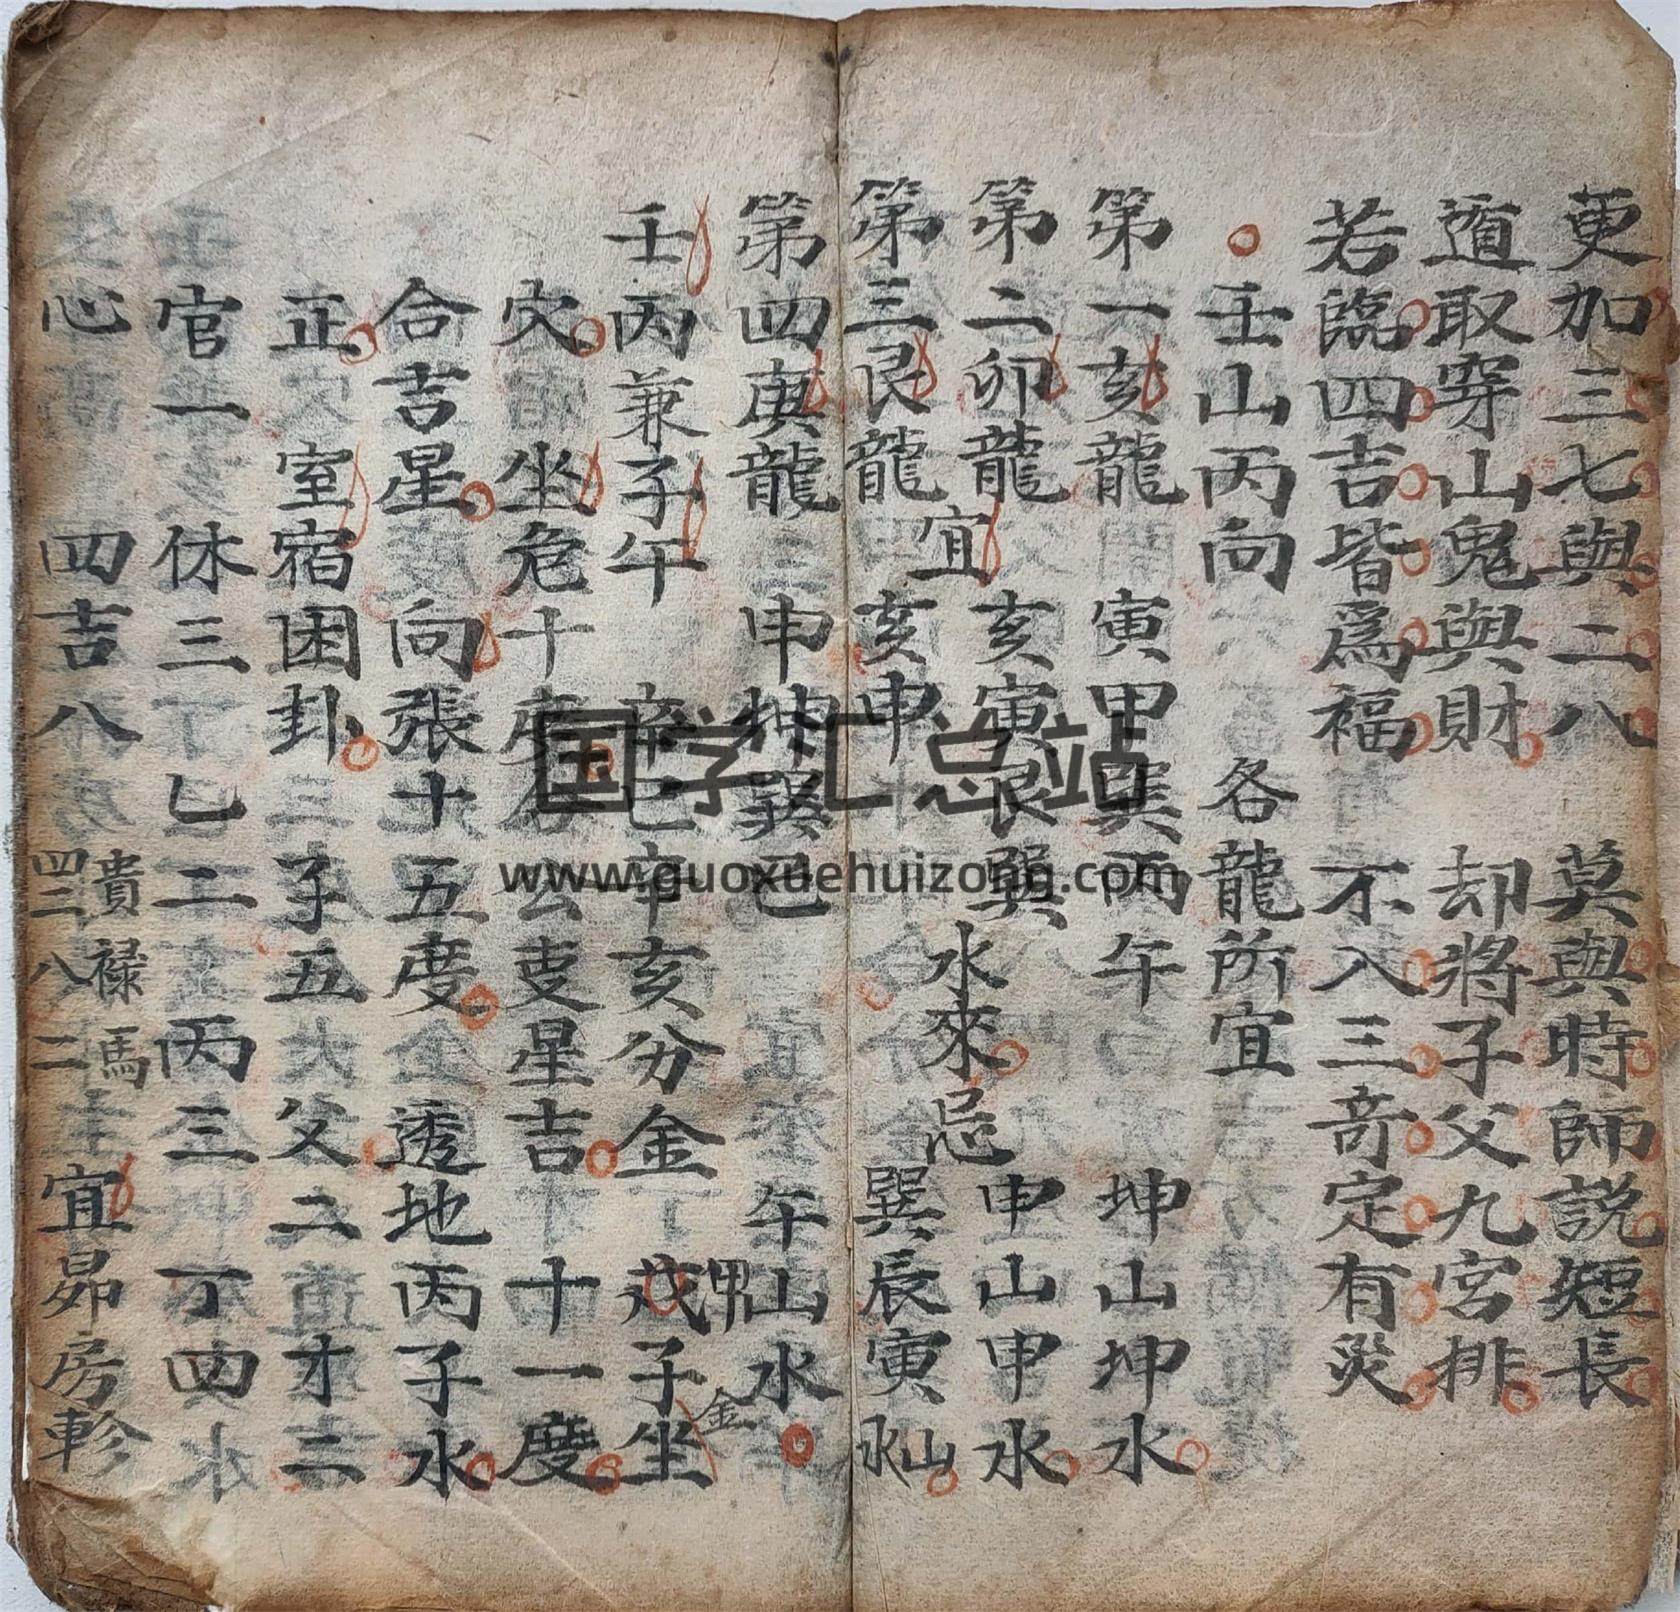 更加三七與二八 莫與時師説短長
遁取穿山鬼與財 却將子父九宮排
若臨四吉皆為福 不入三奇定有災
壬山丙向 各龍所宜
第一亥龍 寅甲巽丙午 坤山坤水
第二卯龍 亥寅艮巽 申山申水
宜 水來 忌
第三艮龍 亥申 巽辰寅山水
第四庚龍 申坤巽巳 午山水
壬丙兼子午 辛巳辛亥分金 甲戊子金坐
穴 坐危十度 星吉 十一度
合吉星 向張十五度 透地丙子水
正 室宿困卦 子五父二才三
官一 休三乙二丙三丁四
心 四吉八 貴禄馬 四二八二 宜昴房軫
国学汇总站
www.guoxuehuizong.com